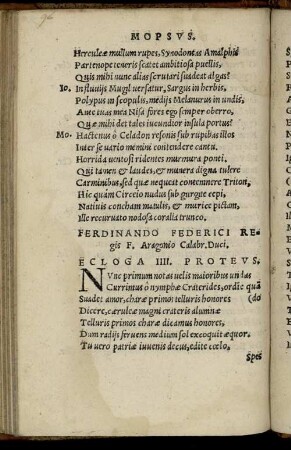 MOPSVS.
Herculeæ mullum rupes, Synodontas Amalphis
Parthenope teneris scatet ambitiosa puellis,
Quis mihi nunc alias scrutari suadeat algas?
Io. In fluuijs Mugil uersatur, Sargus in herbis,
Polypus in scopulis, medijs Melanurus in undis,
Ante tuas mea Nisa fores ego semper oberro,
Quæ mihi det tales iucundior insula portus?
Mo. Hactenus ô Celadon resonis sub rupibus illos
Inter se uario memini contendere cantu.
Horrida uentosi rident murmura ponti.
Qui tamen & laudes, & munera digna tulere
Carminibus, sed quæ nequeat contemnere Triton,
Hic quàm Circeio nudus sub gurgite cepi,
Natiuis concham maculis, & murice pictam,
Ille recuruato nodosa coralia trunco.
FERDINANDO FEDERICI RE
gis F. Aragonio Calabr. Duci,
ECLOGA IIII. PROTEVS.
NVnc primum notas uelis maioribus undas
Currimus ô nymphæ Craterides, ordic quã
Suadet amor, charæ primos telluris honores (do
Dicere, cæruleæ magni crateris alumnæ
Telluris primos charæ dicamus honores,
Dum radijs feruens medium sol excoquit æquor.
Tu uero patriæ iuuenis decus, edite cœlo,
Spes